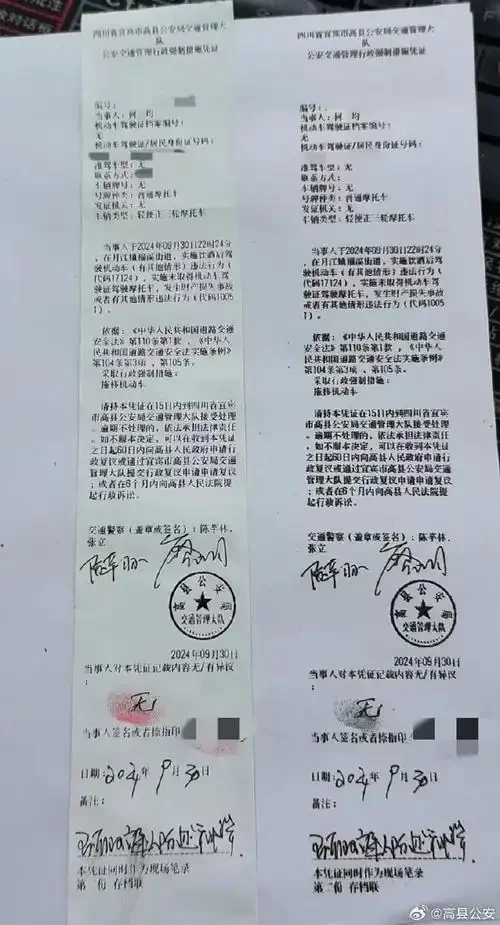 四川省宜宾市高县公安局交通管理大
队
公安交通管理行政强制措施凭证
编号:
当事人:何均
机动车驾驶证档案编号:
无
机动车驾驶证/居民身份证号码:
准驾车型:无
联系方式:
车辆牌号:无
号牌种类:普通摩托车
发证机关:无
车辆类型:轻便正三轮摩托车
当事人于2024年09月30日22时24分
,在月江镇福溪街道,实施饮酒后驾
驶机动车(有其他情形)违法行为(
代码17124),实施未取得机动车驾
驶证驾驶摩托车,发生财产损失事故
或者有其他情形违法行为(代码1005
1)。
依据:《中华人民共和国道路交通
安全法》第110条第1款,《中华人
民共和国道路交通安全法实施条例》
第104条第3项,第105条。
采取行政强制措施:
拖移机动车
请持本凭证在15日内到四川省宜宾
市高县公安局交通管理大队接受处理
。逾期不处理的,依法承担法律责任
。如不服本决定,可以在收到本凭证
之日起60日内向高县人民政府申请行
政复议或通过宜宾市高县公安局交通
管理大队提交行政复议申请申请复议
;或者在6个月内向高县人民法院提
起行政诉讼。
交通警察(盖章或签名):陈林
张立
高县公安局
交通管理大队
2024年09月30日
当事人对本凭证记载内容无/有异议
:
无
当事人签名或者捺指印
日期:2024年9月30日
备注:
本凭证同时作为现场笔录
第二份 存档联
四川省宜宾市高县公安局交通管理大
队
公安交通管理行政强制措施凭证
编号:
当事人:何均
机动车驾驶证档案编号:
无
机动车驾驶证/居民身份证号码:
准驾车型:无
联系方式:
车辆牌号:无
号牌种类:普通摩托车
发证机关:无
车辆类型:轻便正三轮摩托车
当事人于2024年09月30日22时24分
,在月江镇福溪街道,实施饮酒后驾
驶机动车(有其他情形)违法行为(
代码17124),实施未取得机动车驾
驶证驾驶摩托车,发生财产损失事故
或者有其他情形违法行为(代码1005
1)。
依据:《中华人民共和国道路交通
安全法》第110条第1款,《中华人
民共和国道路交通安全法实施条例》
第104条第3项,第105条。
采取行政强制措施:
拖移机动车
请持本凭证在15日内到四川省宜宾
市高县公安局交通管理大队接受处理
。逾期不处理的,依法承担法律责任
。如不服本决定,可以在收到本凭证
之日起60日内向高县人民政府申请行
政复议或通过宜宾市高县公安局交通
管理大队提交行政复议申请申请复议
;或者在6个月内向高县人民法院提
起行政诉讼。
交通警察(盖章或签名):陈林
张立
高县公安局
交通管理大队
2024年09月30日
当事人对本凭证记载内容无/有异议
:
无
当事人签名或者捺指印
日期:2024年9月30日
备注:
本凭证同时作为现场笔录
第二份 存档联
@高县公安